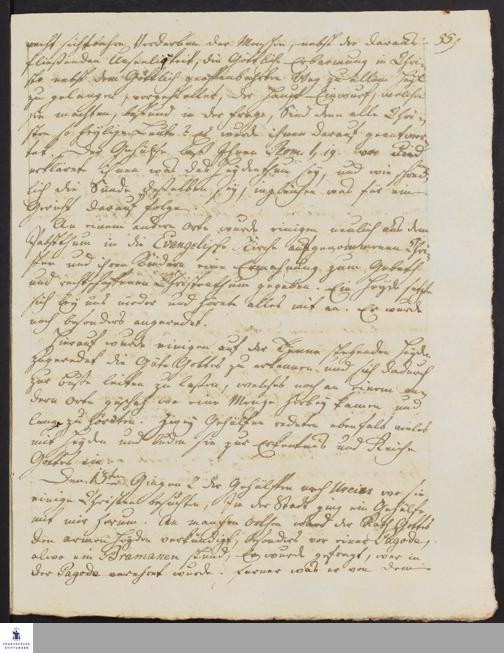 55
nicht sichtbahre Verderben der Menschen, nebst der daraus
fließenden Unseeligkeit, die Göttliche Erbarmung in Chri-
sto nebst dem Göttlich geoffenbahrten Weg zu allem Heyl
zu gelangen, vorgestellet, der Haupt-Einwurf, welchen
sie machten, bestund in der Frage, Sind denn alle Chri-
sten so heylige Leute? es wurde ihnen darauf geantwor-
tet. Der Gehülfe las ihnen Rom. 1, 19. vor und
erklärte ihnen was das Heydenthum sey, und wie schreck-
lich die Sünde desselben sey, ingleichen was für ein
Gericht darauf folge.
An einem andern Orte wurde einigen neulich aus dem
Pabsthum in die Evangelische Kirche aufgenommenen Chri-
sten und ihren Kindern eine Ermahnung zum Gebeth
und rechtschaffenen Christenthum gegeben. Ein Heyde setzte
sich bey uns nieder und hörete alles mit an. Er wurde
noch besonders angeredet.
Hierauf wurde einigen auf der Tinna sitzenden Heyden
zugeredet die Güte Gottes zu erkennen und sich dadurch
zur Buße leiten zu lassen, welches noch an einem an-
dern Orte geschah wo eine Menge herbey kamen und
lange zuhöreten. Zwey Gehülfen redeten ebenfals vieles
mit Heyden und luden sie zur Erkentnis und Reiche
Gottes ein.
Den 13ten giengen 2 der Gehülfen nach Ureiur wo sie
einige Christen besuchten, In der Stadt ging ein Gehülfe
mit mir herum. An manchen Orten ward der Rath Gottes
den armen Heyden verkündiget, besonders vor einer Pagode,
alwo ein Bramanen stund, Er wurde gefragt, wer in
der Pagode verehret wurde. Ferner was er von dem
FRANCKESCHE
STIFTUNGEN